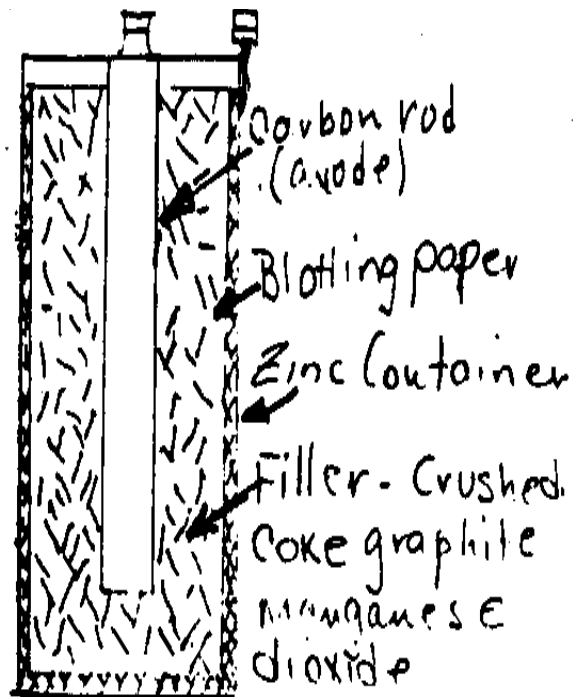 Carbon rod
(anode)
Blotting paper
Zinc Container
Filler - Crushed.
Coke graphite
Manganese
dioxide